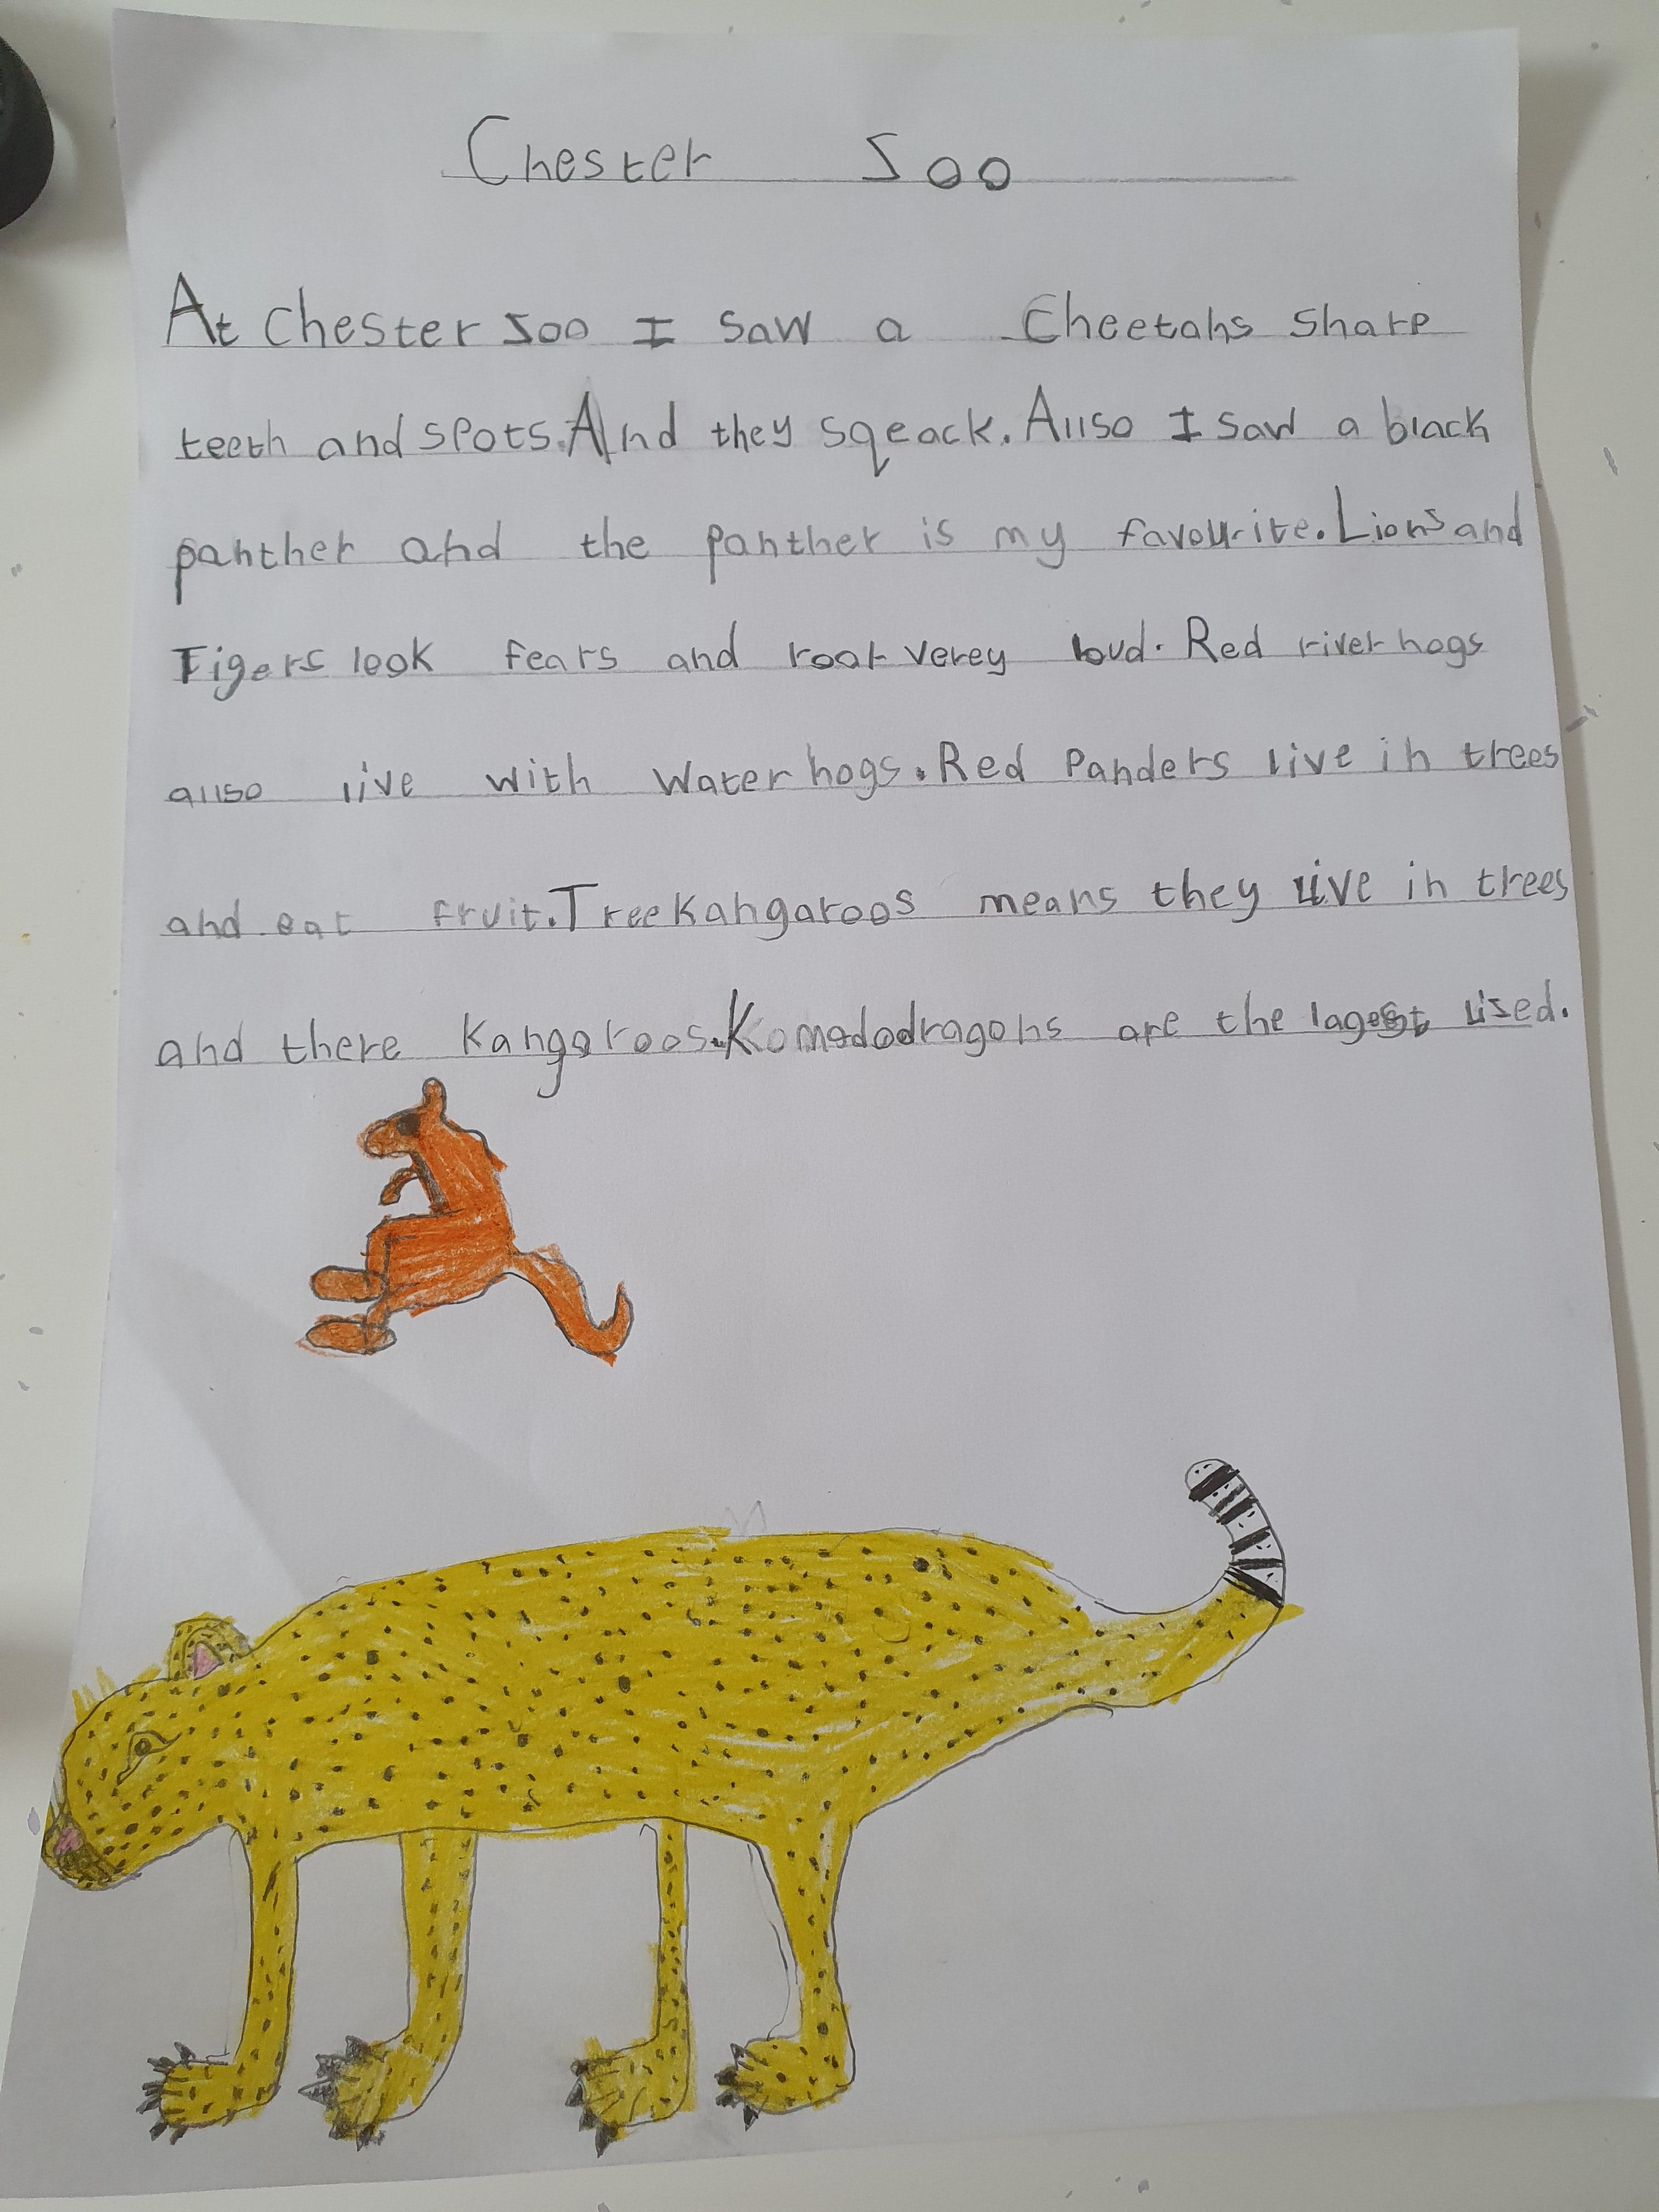 Chester Zoo
At Chester zoo I saw a Cheetahs sharp
teeth and spots. And they sqeack. Allso I saw a black
panther and the panther is my favourite. Lions and
Tigers look fears and roar verey loud. Red river hogs
allso live with Water hogs. Red Panders live in trees
and eat fruit. Tree Kangaroos means they live in trees
and there Kangaroos. Komododragons are the lagest lized.